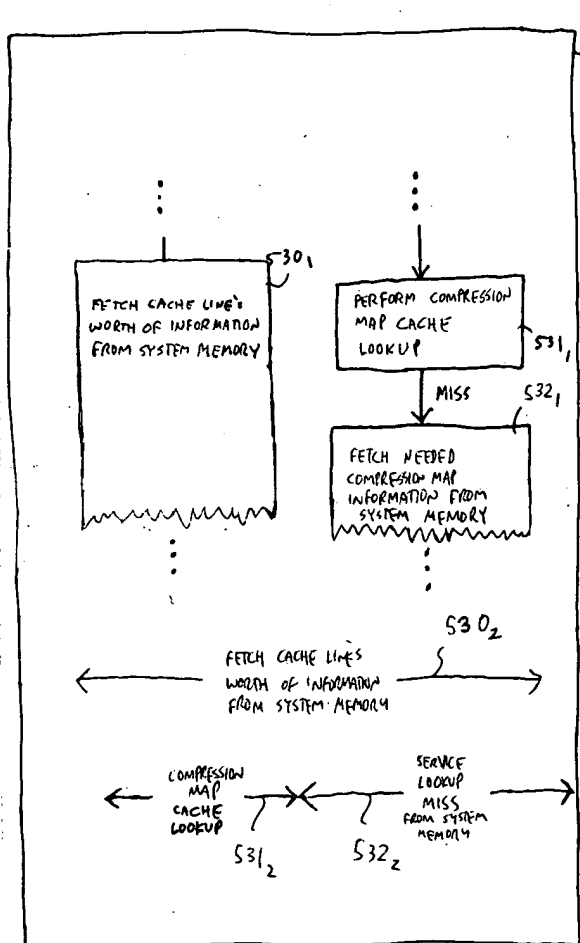 530₁
FETCH CACHE LINE'S
WORTH OF INFORMATION
FROM SYSTEM MEMORY
PERFORM COMPRESSION
MAP CACHE
LOOKUP
531₁
MISS
532₁
FETCH NEEDED
COMPRESSION MAP
INFORMATION FROM
SYSTEM MEMORY
530₂
FETCH CACHE LINE'S
WORTH OF INFORMATION
FROM SYSTEM MEMORY
COMPRESSION
MAP
CACHE
LOOKUP
531₂
SERVICE
LOOKUP
MISS
FROM SYSTEM
MEMORY
532₂